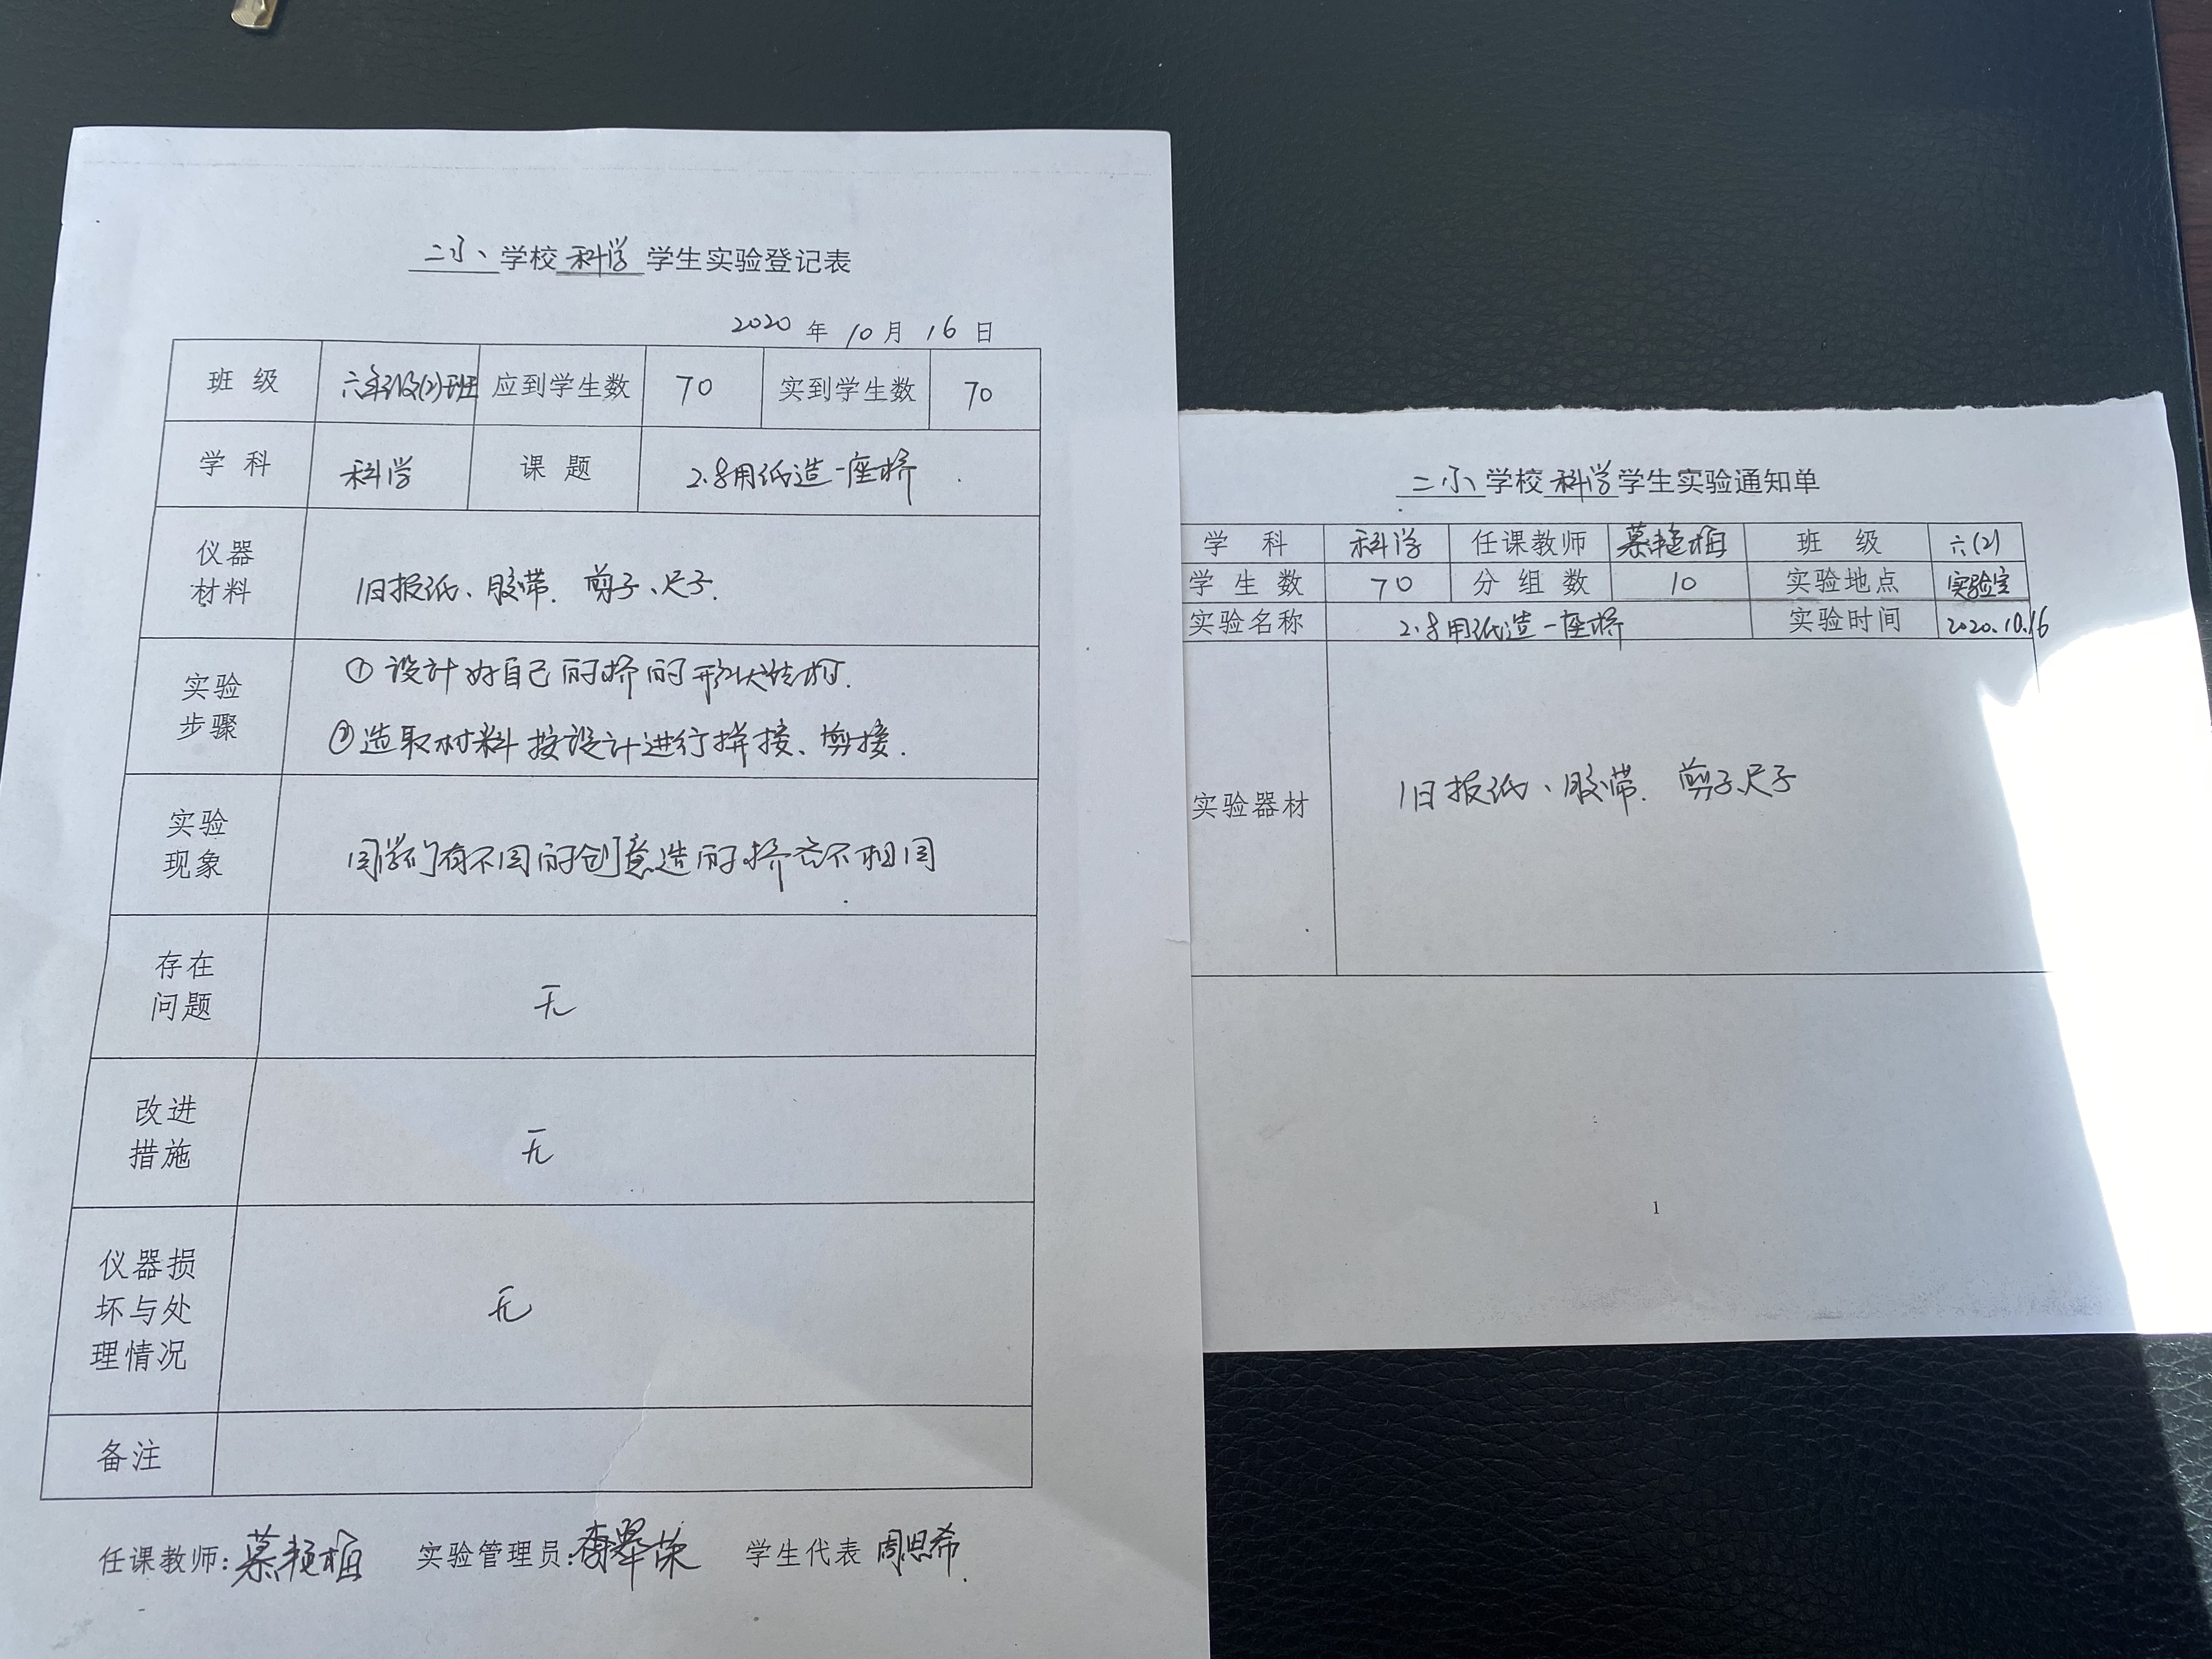 二小学校科学学生实验登记表
2020年10月16日
班级 六年级(2)班 应到学生数 70 实到学生数 70
学科 科学 课题 2.8用纸造一座桥
仪器材料 旧报纸、胶带、剪子、尺子.
实验步骤 ①设计好自己的桥的形状结构.
②选取材料按设计进行拼接、剪接.
实验现象 同学们有不同的创意造的桥也不相同
存在问题 无
改进措施 无
仪器损坏与处理情况 无
备注
任课教师:慕艳梅 实验管理员:李翠荣 学生代表 周思希
二小学校科学学生实验通知单
学科 科学 任课教师 慕艳梅 班级 六(2)
学生数 70 分组数 10 实验地点 实验室
实验名称 2.8用纸造一座桥 实验时间 2020.10.16
实验器材 旧报纸、胶带、剪子、尺子
1